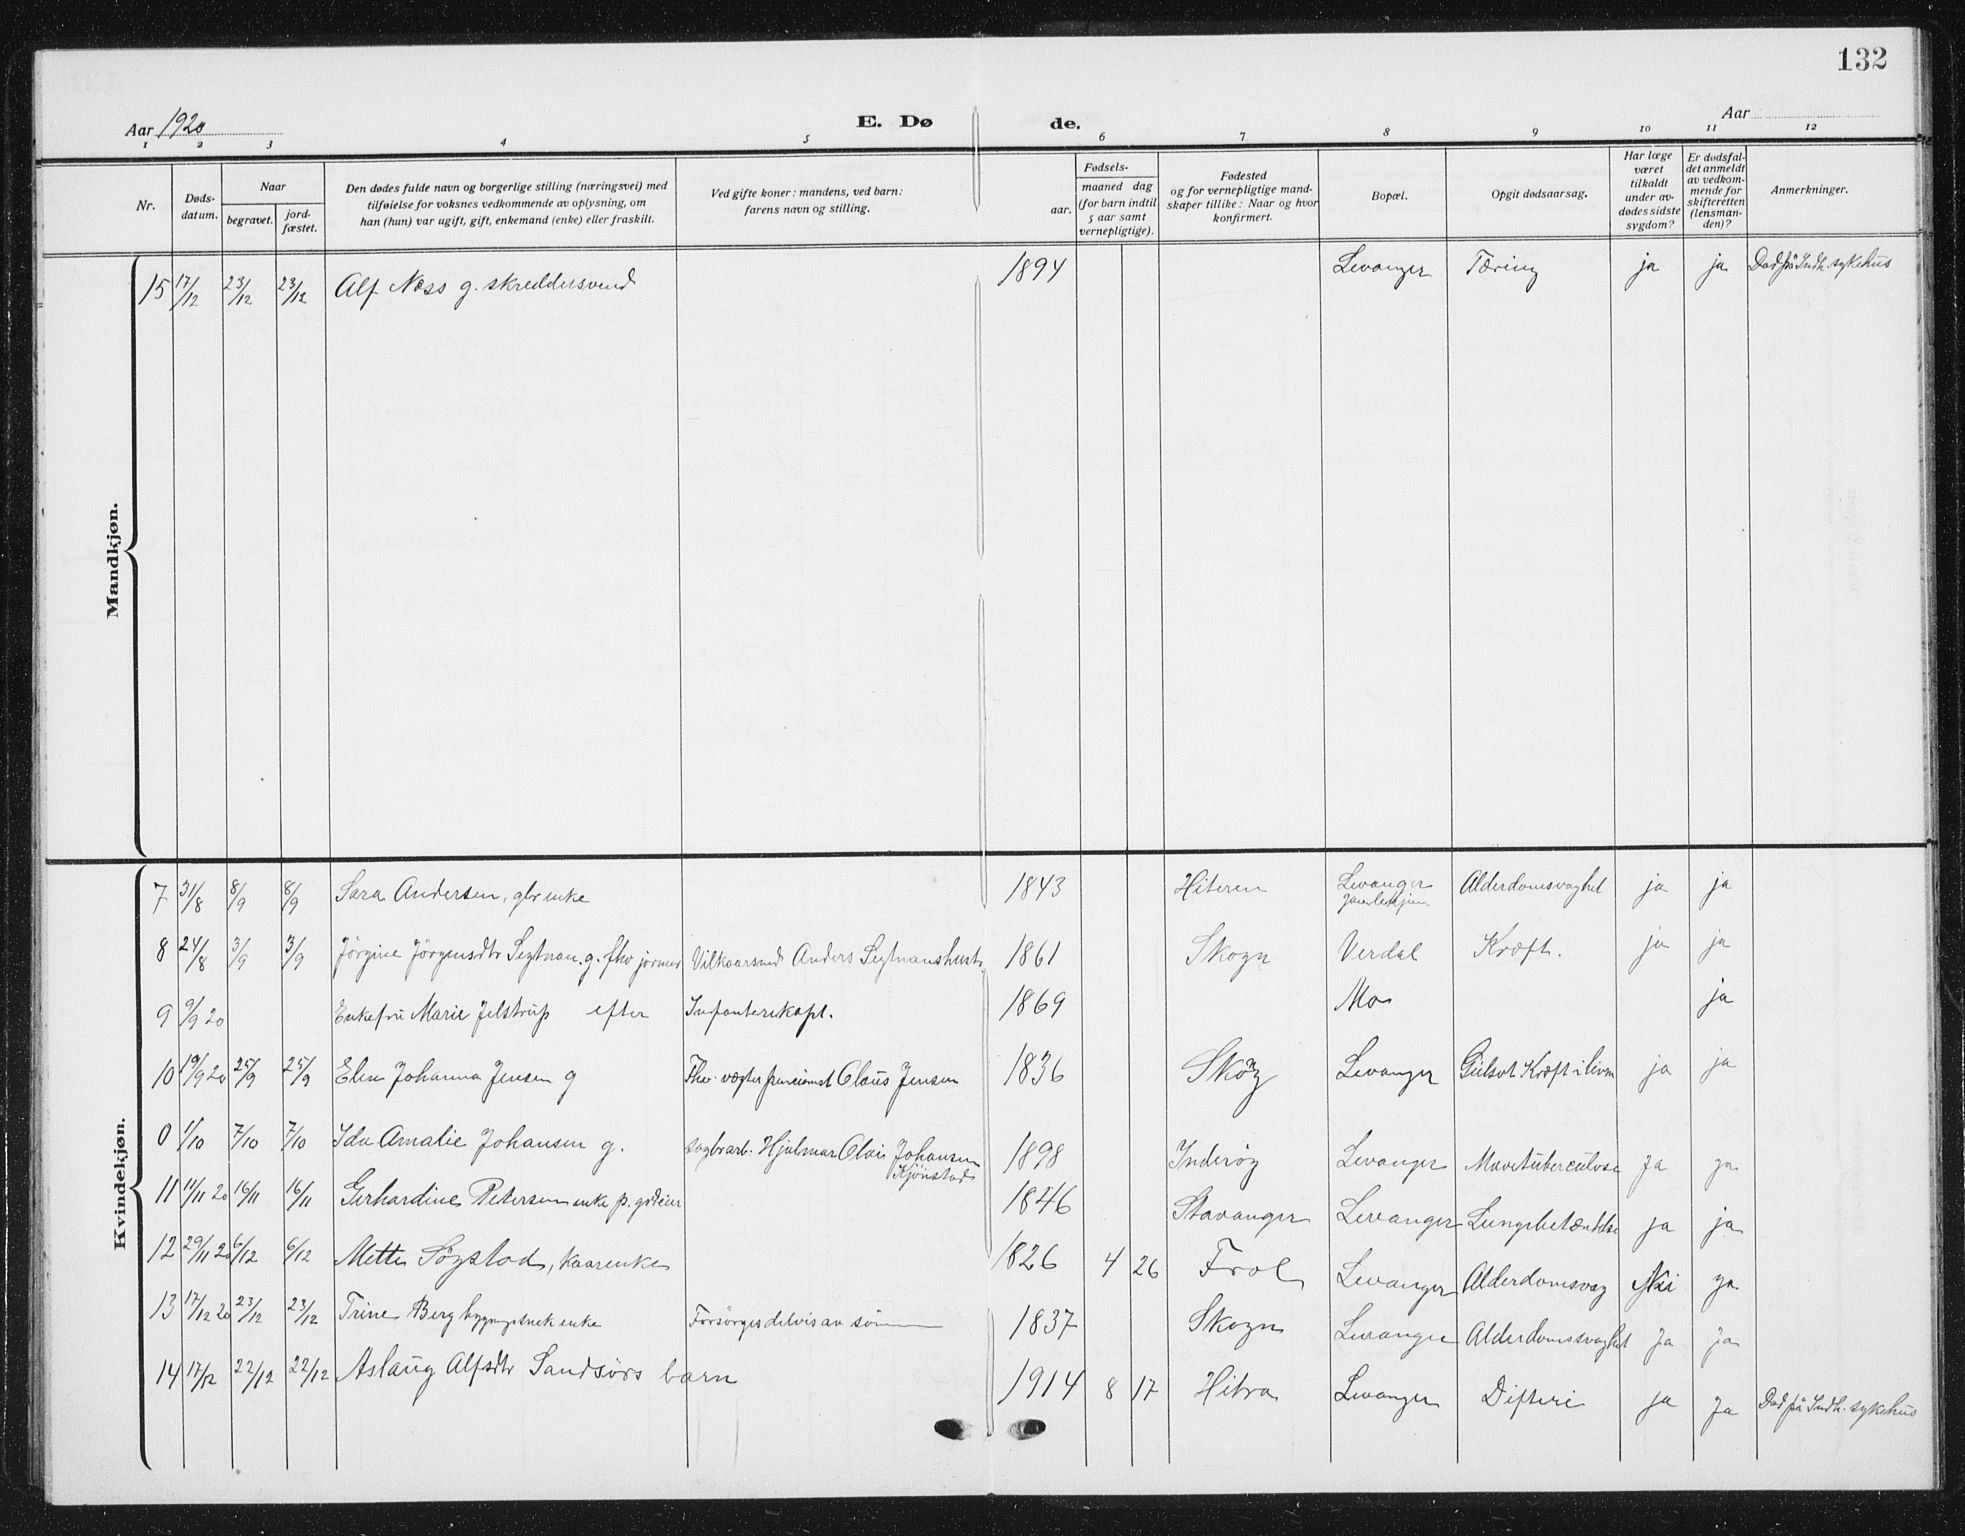 132
Aar 1920 E. Dø de. Aar
1 2 3 4 5 6 7 8 9 10 11 12
Nr.
Døds-
datum.
Naar
begravet.
jord-
fæstet.
Den dødes fulde navn og borgerlige stilling (næringsvei) med
tilføielse for voksnes vedkommende av oplysning, om
han (hun) var ugift, gift, enkemand (enke) eller fraskilt.
Ved gifte koner: mandens, ved barn:
farens navn og stilling.
aar.
Fødsels-
maaned dag
(for barn indtil
5 aar samt
vernepligtige).
Fødested
og for vernepligtige mand-
skaper tillike: Naar og hvor
konfirmert.
Bopæl.
Opgit dødsaarsag.
Har læge
været
tilkaldt
under av-
dødes sidste
sygdom?
Er dødsfal-
det anmeldt
av vedkom-
mende for
skifteretten
(lensman-
den)?
Anmerkninger.
Mandkjøn.
15 17/12 23/12 23/12 Alf Næss g. skreddersvend 1894 Levanger Tæring ja ja Død på Indh. sykehus
Kvindekjøn.
7 31/8 8/9 8/9 Sara Andersen, glvenke 1843 Hiteren Levanger Alderdomsvaghet ja ja
8 24/8 3/9 3/9 Jörgine Jörgensdtr Segtnan. g. Vilkaarsmd Anders Segtnanshustr. 1861 Skogn Verdal Kræft. ja ja
9 9/9 20 Enkefru Marie Jelstrup efter Infanterikapt. 1869 Mo ja
10 19/9 20 25/9 25/9 Elen Johanna Jensen g Fhv. vægterpensionist Claus Jensen 1836 Skogn Levanger Gulsot Kræft i liven ja ja
0 1/10 7/10 7/10 Ida Amalie Johansen g. sagbrarb. Hjalmar Olai Johansen 1898 Inderöy Levanger Mavetuberculose ja ja
Kjönstad
11 11/11 20 16/11 16/11 Gerhardine Petersen enke p. gdeier 1846 Stavanger Levanger Lungebetændelse ja ja
12 29/11 20 6/12 6/12 Mette Sögstad, kaarenke 1826 4 26 Frol Levanger Alderdomsvag Nei ja
13 17/12 20 23/12 23/12 Trine Berg bygningssnek enke Forsörges delvis av sönnen 1837 Skogn Levanger Alderdomssvaghet Ja Ja
14 17/12 22/12 22/12 Aslaug Alfsdtr Sandsörs barn 1914 8 17 Hitra Levanger Difteri ja Ja Död på Indh. sykehus